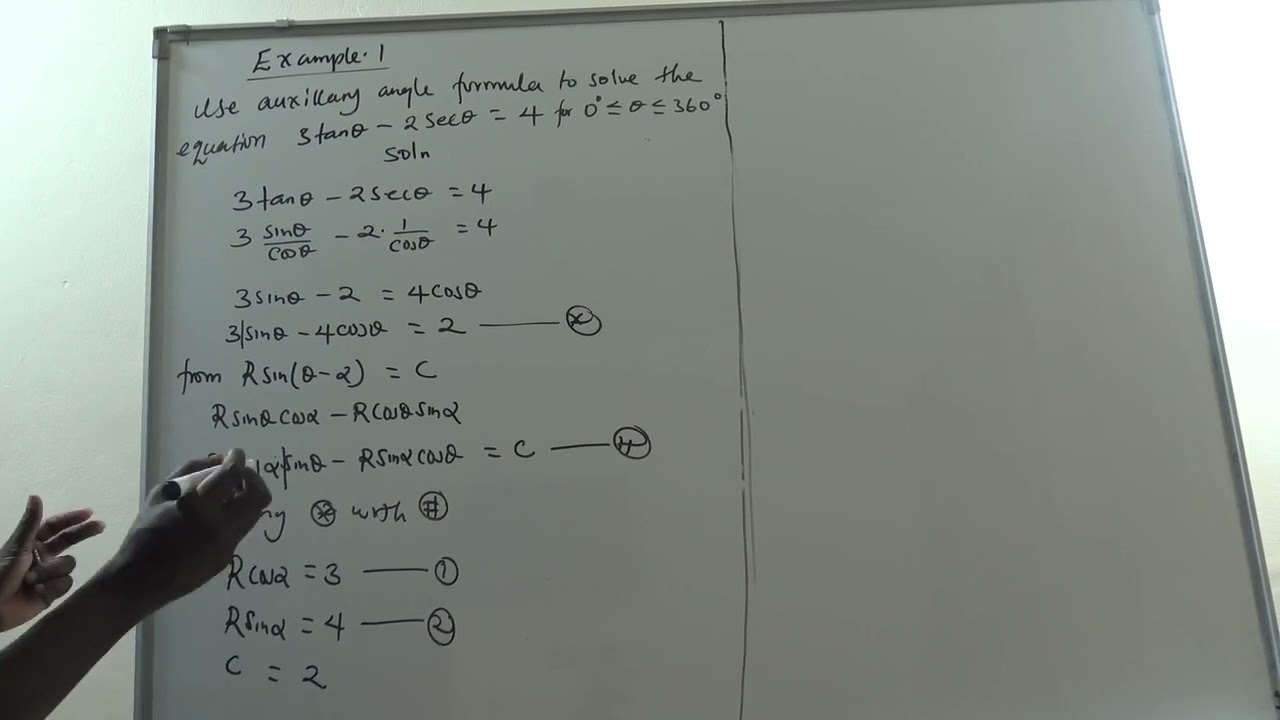 Example.1
Use auxillary angle formula to solve the
equation 3tanθ - 2secθ = 4 for 0° ≤ θ ≤ 360°
soln
3tanθ - 2secθ = 4
3 sinθ/cosθ - 2· 1/cosθ = 4
3sinθ - 2 = 4cosθ
3sinθ - 4cosθ = 2 —— ⊛
from Rsin(θ-α) = C
Rsinθcosα - Rcosθsinα
α sinθ - Rsinαcosθ = C ——
⊛ with #
Rcosα = 3 —— ①
Rsinα = 4 —— ②
C = 2